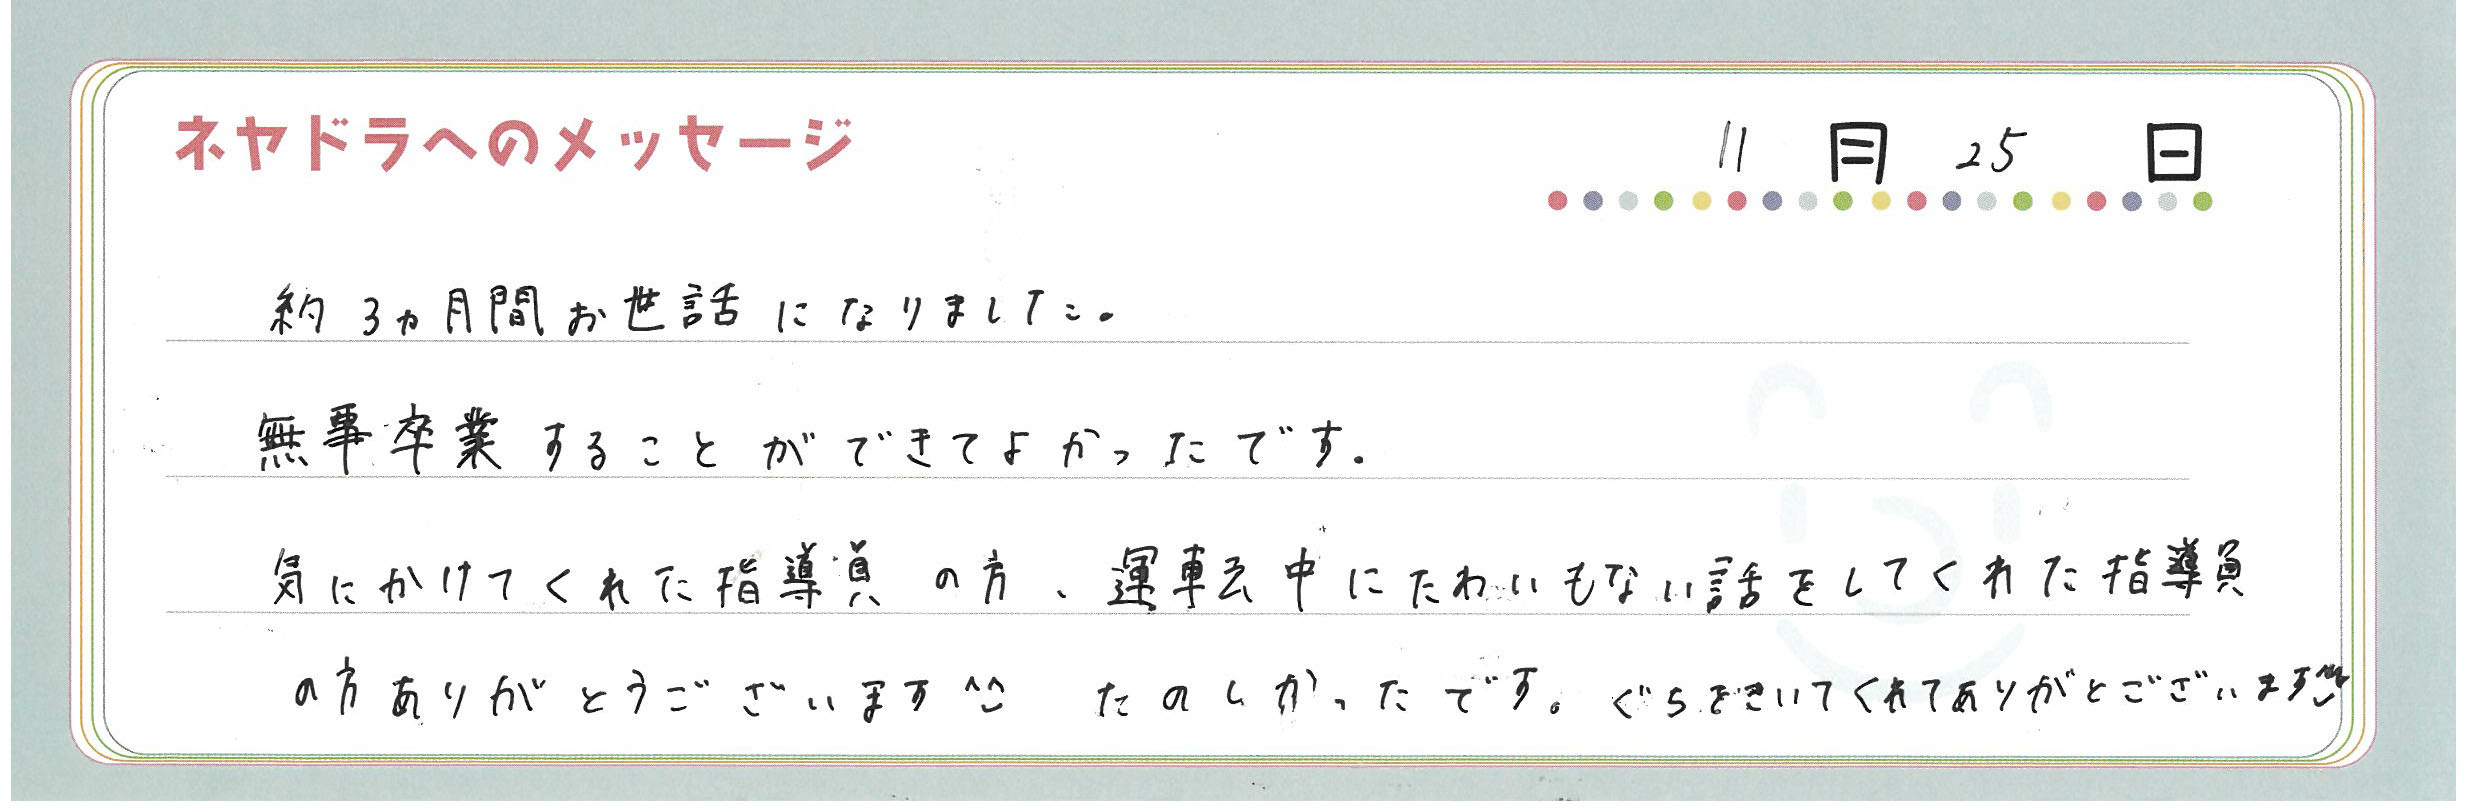 ネヤドラへのメッセージ
11月25日
約3ヵ月間お世話になりました。
無事卒業することができてよかったです。
気にかけてくれた指導員の方、運転中にたわいもない話をしてくれた指導員
の方ありがとうございます^^ たのしかったです。ぐちをきいてくれてありがとございます^^